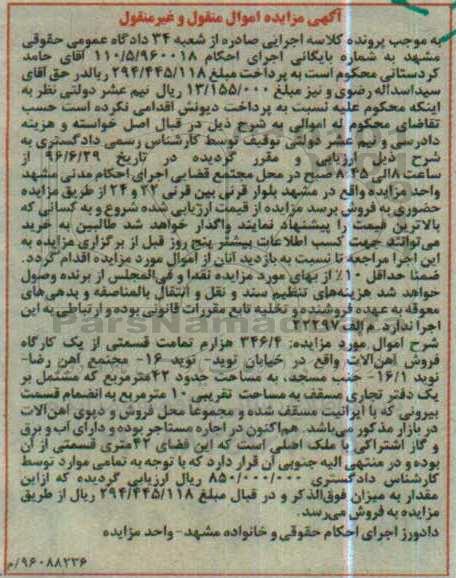 آگهی مزایده اموال منقول و غیرمنقول
به موجب پرونده کلاسه اجرایی صادره از شعبه ۳۴ دادگاه عمومی حقوقی
مشهد به شماره بایگانی اجرای احکام ۱۱۰/۵/۹۶۰۰۱۸ آقای حامد
کردستانی محکوم است به پرداخت مبلغ ۲۹۴/۴۴۵/۱۱۸ ریالدر حق آقای
سیداسداله رضوی و نیز مبلغ ۱۳/۱۵۵/۰۰۰ ریال نیم عشر دولتی نظر به
اینکه محکوم علیه نسبت به پرداخت دیونش اقدامی نکرده است حسب
تقاضای محکوم له اموالی به شرح ذیل در قبال اصل خواسته و هزینه
دادرسی و نیم عشر دولتی توقیف توسط کارشناس رسمی دادگستری به
شرح ذیل ارزیابی و مقرر گردیده در تاریخ ۹۶/۶/۲۹ از
ساعت ۸الی ۸:۴۵ صبح در محل مجتمع قضایی اجرای احکام مدنی مشهد
واحد مزایده واقع در مشهد بلوار قرنی بین قرنی ۲۲ و ۲۴ از طریق مزایده
حضوری به فروش برسد مزایده از قیمت ارزیابی شده شروع و به کسانی که
بالاترین قیمت را پیشنهاد نمایند واگذار خواهد شد طالبین به خرید
می‌توانند جهت کسب اطلاعات بیشتر پنج روز قبل از برگزاری مزایده به
این اجرا مراجعه تا نسبت به بازدید آنان از اموال مورد مزایده اقدام گردد.
ضمنا حداقل ۱۰٪ از بهای مورد مزایده نقدا و فی‌المجلس از برنده وصول
خواهد شد هزینه‌های تنظیم سند و نقل و انتقال بالمناصفه و بدهی‌های
معوقه به عهده فروشنده و تخلیه تابع مقررات قانونی بوده و ارتباطی به این
اجرا ندارد. م الف ۲۲۲۹۷
شرح اموال مورد مزایده: ۳۴۶/۴ هزارم تمامت قسمتی از یک کارگاه
فروش آهن‌آلات واقع در خیابان نوید- نوید ۱۶- مجتمع آهن رضا-
نوید ۱۶/۱- جنب مسجد، به مساحت حدود ۴۲مترمربع که مشتمل بر
یک دفتر تجاری مسقف به مساحت تقریبی ۱۰ مترمربع به انضمام قسمت
بیرونی که با ایرانیت مسقف شده و مجموعا محل فروش و دپوی آهن‌آلات
در بازار مذکور می‌باشد. هم‌اکنون در اجاره مستاجر بوده و دارای آب و برق
و گاز اشتراکی با ملک اصلی است که این فضای ۴۲متری قسمتی از آن
بوده و در منتهی الیه جنوبی آن قرار دارد که با توجه به تمامی موارد توسط
کارشناس دادگستری ۸۵۰/۰۰۰/۰۰۰ ریال ارزیابی گردیده که ازاین
مقدار به میزان فوق‌الذکر و در قبال مبلغ ۲۹۴/۴۴۵/۱۱۸ ریال از طریق
مزایده به فروش می‌رسد.
دادورز اجرای احکام حقوقی و خانواده مشهد- واحد مزایده
۹۶۰۸۸۲۳۶/م
ParsNamad